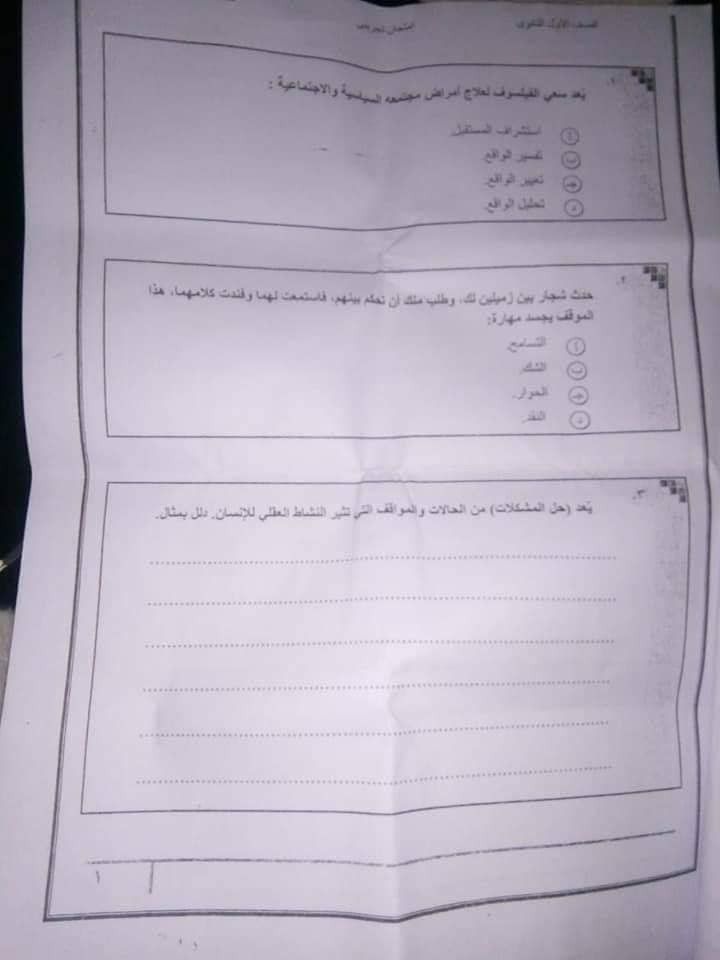 الصف الأول الثانوي
امتحان تجريبي
١.
يُعد سعي الفيلسوف لعلاج أمراض مجتمعه السياسية والاجتماعية :
أ استشراف المستقبل.
ب تفسير الواقع.
جـ تغيير الواقع.
د تحليل الواقع.
٢.
حدث شجار بين زميلين لك، وطلب منك أن تحكم بينهم، فاستمعت لهما وفندت كلامهما، هذا
الموقف يجسد مهارة:
أ التسامح.
ب الشك.
جـ الحوار.
د النقد.
٣.
يُعد (حل المشكلات) من الحالات والمواقف التي تثير النشاط العقلي للإنسان. دلل بمثال.
١